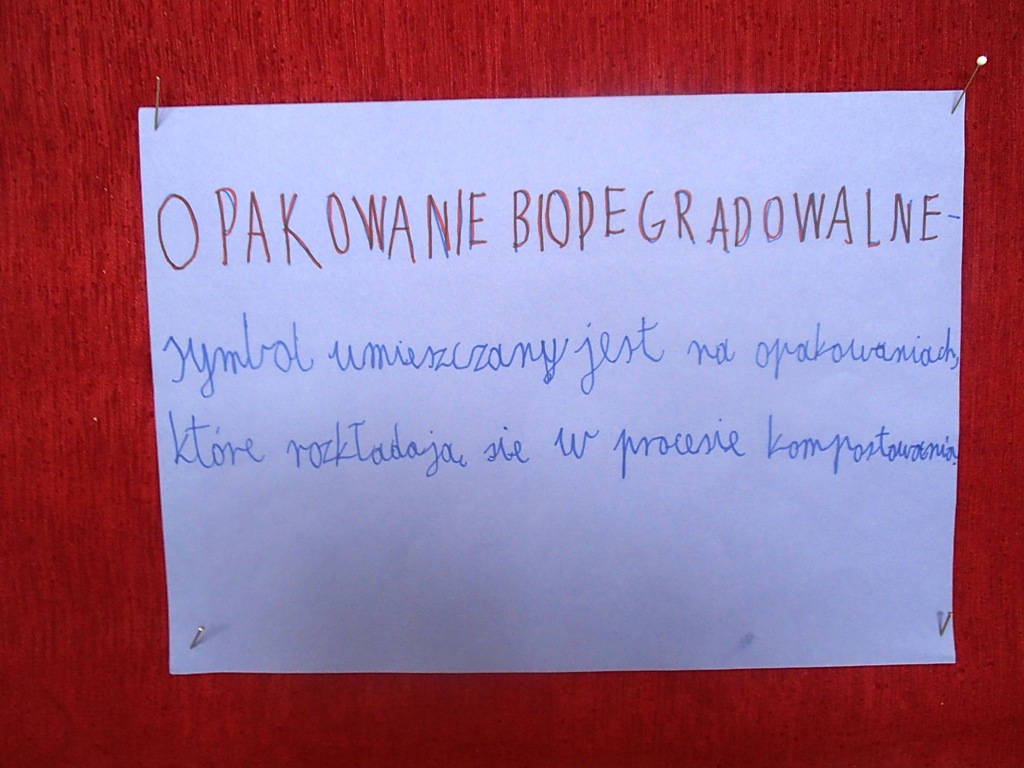 OPAKOWANIE BIODEGRADOWALNE-
symbol umieszczany jest na opakowaniach,
które rozkładają się w procesie kompostowania.